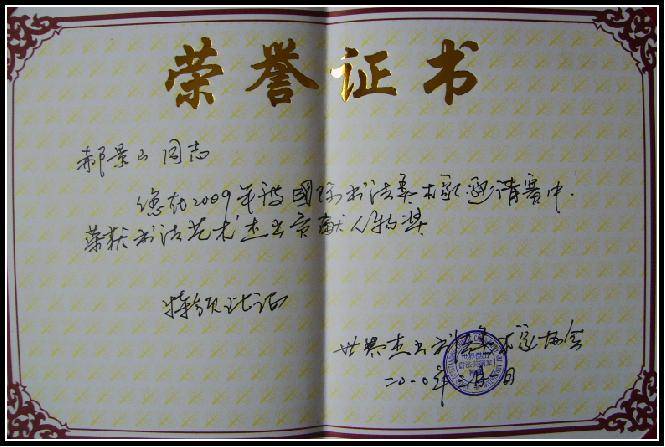 荣誉证书
郝景山 同志
您在2009年被國际书法美术家邀请赛中.
荣获书法艺术杰出贡献人物奖
特颁此证
世界杰出书法美术家协会
二〇一〇年三月 日